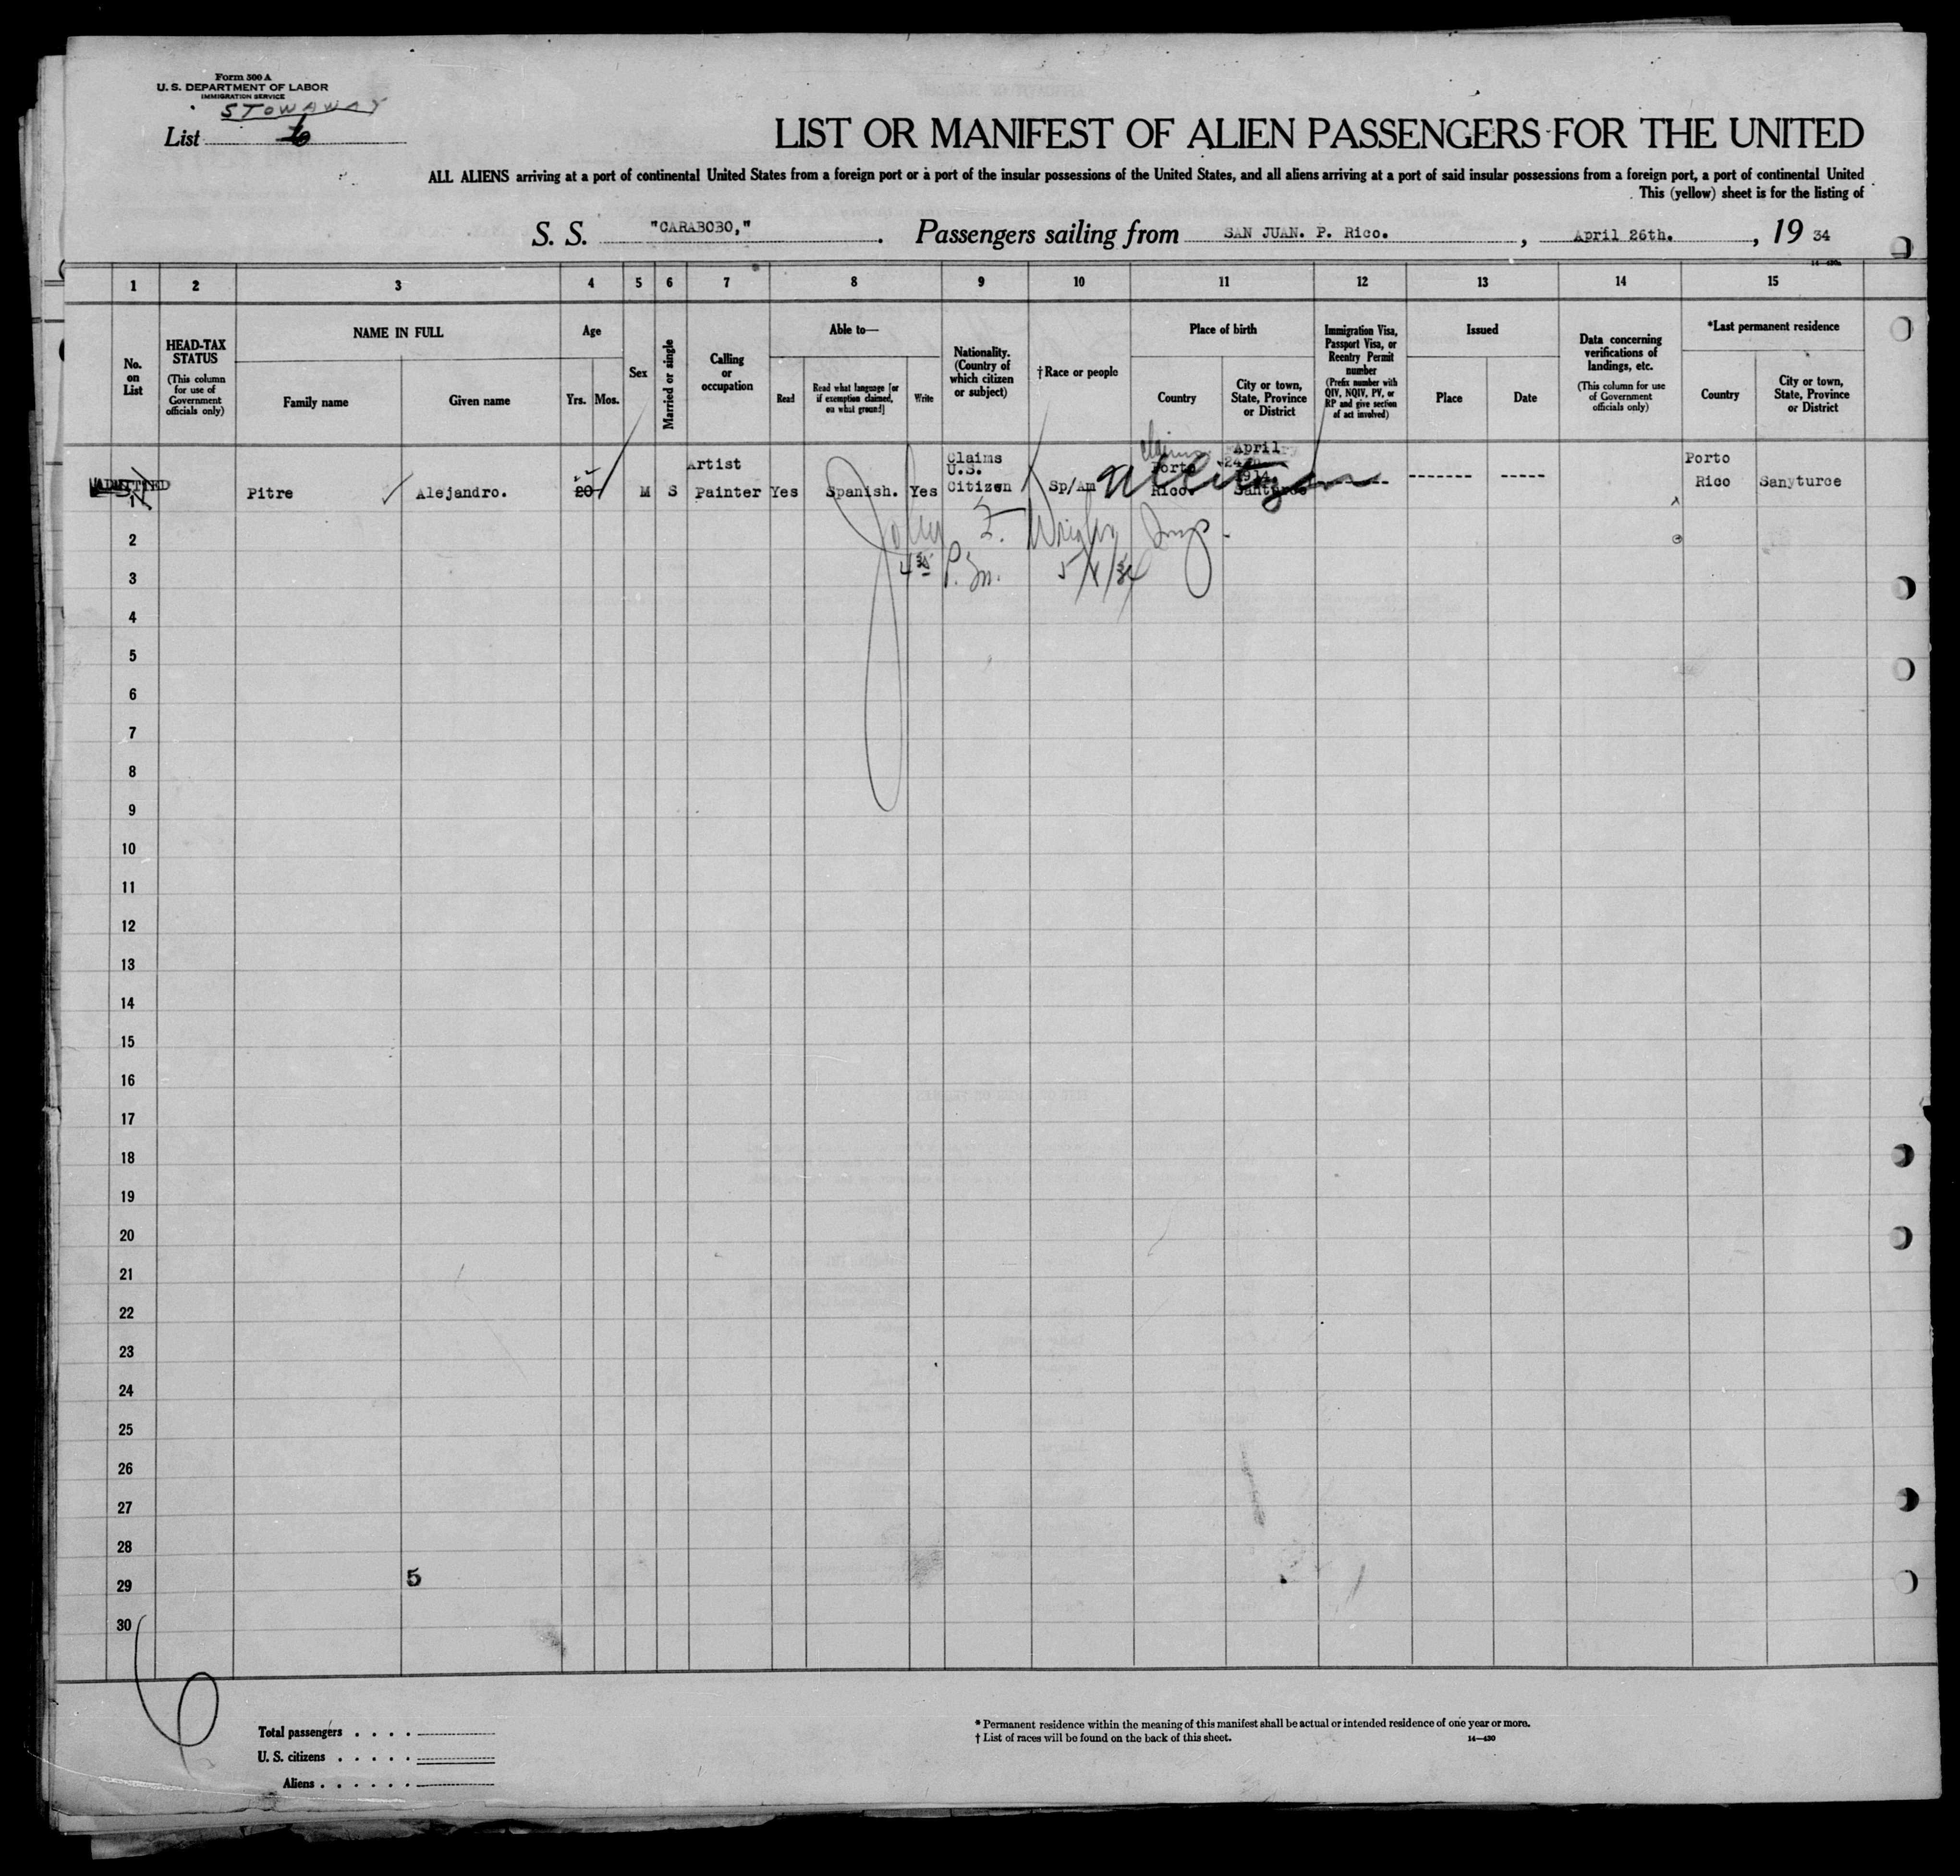 Form 500 A
U. S. DEPARTMENT OF LABOR
IMMIGRATION SERVICE
STOWAWAY
List
LIST OR MANIFEST OF ALIEN PASSENGERS FOR THE UNITED
ALL ALIENS arriving at a port of continental United States from a foreign port or a port of the insular possessions of the United States, and all aliens arriving at a port of said insular possessions from a foreign port, a port of continental United
This (yellow) sheet is for the listing of
S. S. "CARABOBO," . Passengers sailing from SAN JUAN. P. Rico. , April 26th. , 19 34
1 2 3 4 5 6 7 8 9 10 11 12 13 14 15
No. on List
HEAD-TAX STATUS
(This column for use of Government officials only)
NAME IN FULL
Family name
Given name
Age
Yrs.
Mos.
Sex
Married or single
Calling or occupation
Able to—
Read
Read what language [or if exemption claimed, on what ground]
Write
Nationality. (Country of which citizen or subject)
†Race or people
Place of birth
Country
City or town, State, Province or District
Immigration Visa, Passport Visa, or Reentry Permit number
(Prefix number with QIV, NQIV, PV, or RP and give section of act involved)
Issued
Place
Date
Data concerning verifications of landings, etc.
(This column for use of Government officials only)
*Last permanent residence
Country
City or town, State, Province or District
ADMITTED
Pitre
Alejandro.
20
M
S
Artist
Painter
Yes
Spanish.
Yes
Claims
U.S.
Citizen
Sp/Am
claims
Porto
Rico.
April
24th
1914
Santurce
US Citizen
------- -----
Porto
Rico
Sanyturce
John F. Wright Insp.
4 30 P.M. 5/1/34
2
3
4
5
6
7
8
9
10
11
12
13
14
15
16
17
18
19
20
21
22
23
24
25
26
27
28
29
30
5
Total passengers . . . .
U. S. citizens . . . . .
Aliens . . . . . .
* Permanent residence within the meaning of this manifest shall be actual or intended residence of one year or more.
† List of races will be found on the back of this sheet.
14—430